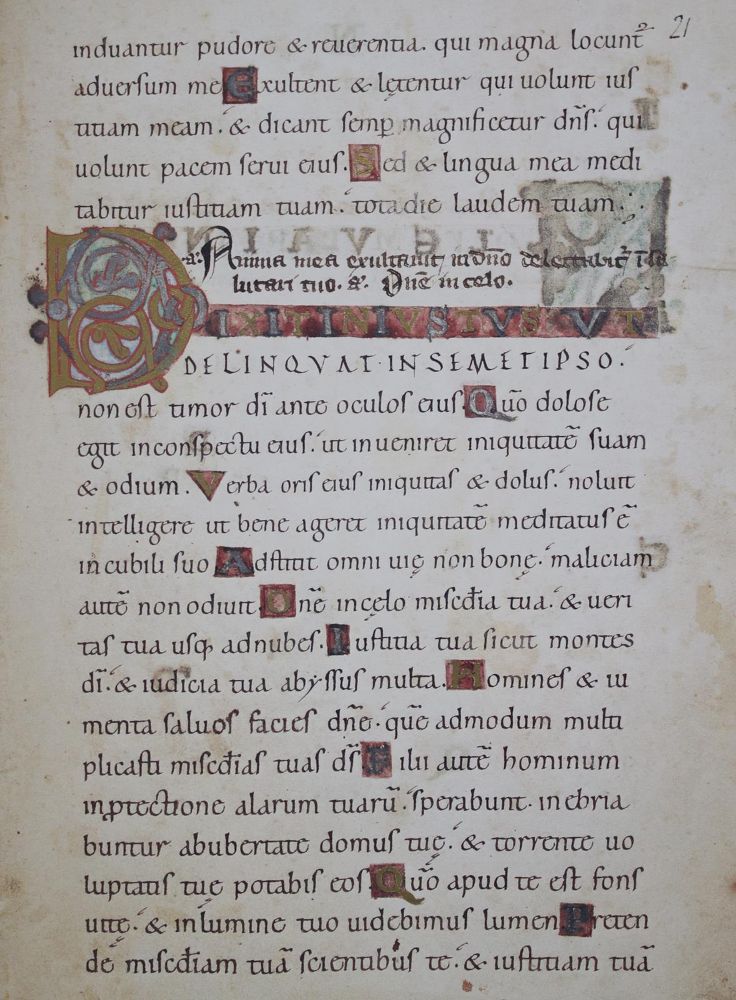 21
induantur pudore & reuerentia. qui magna locunt᷑
aduersum me Exultent & lętentur qui uolunt ius
titiam meam. & dicant semp magnificetur dn̄s. qui
uolunt pacem serui eius. Sed & lingua mea medi
tabitur iustitiam tuam. tota die laudem tuam.
a. Anima mea exultauit in dn̄o delectabit᷑ ī sa
lutari tuo. a. Dn̄e in celo.
DIXIT INIUSTUS UT
DELINQUAT IN SEMETIPSO.
non est timor dī ante oculos eius Qūo dolose
egit inconspectu eius. ut inueniret iniquitatē suam
& odium. Verba oris eius iniquitas & dolus. noluit
intelligere ut bene ageret iniquitatē meditatus ē
in cubili suo Adstitit omni uię non bonę. maliciam
autē non odiuit Dn̄e incelo misc̄dia tua. & ueri
tas tua usq; adnubes. Iustitia tua sicut montes
dī. & iudicia tua abyssus multa. Homines & iu
menta saluos facies dn̄e. quē admodum multi
plicasti misc̄dias tuas ds̄ Filii autē hominum
inptectione alarum tuarū. sperabunt. inebria
buntur abubertate domus tuę. & torrente uo
luptatis tuę potabis eos Qūo apud te est fons
uitę. & inlumine tuo uidebimus lumen Preten
de misc̄diam tuā scientibus te. & iustitiam tuā